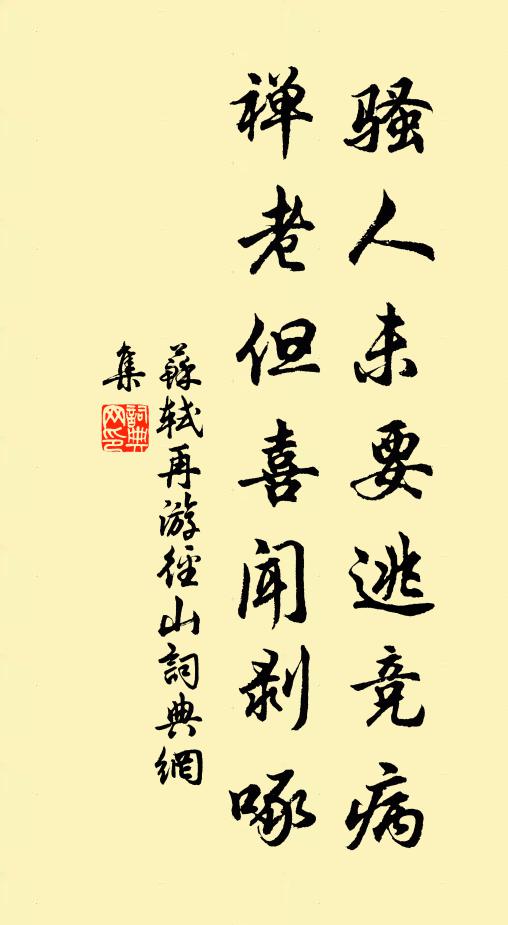 骚人未要逃竞病
禅老但喜闻剥啄
蘇轼再游徑山詞典網
集
詞典网印